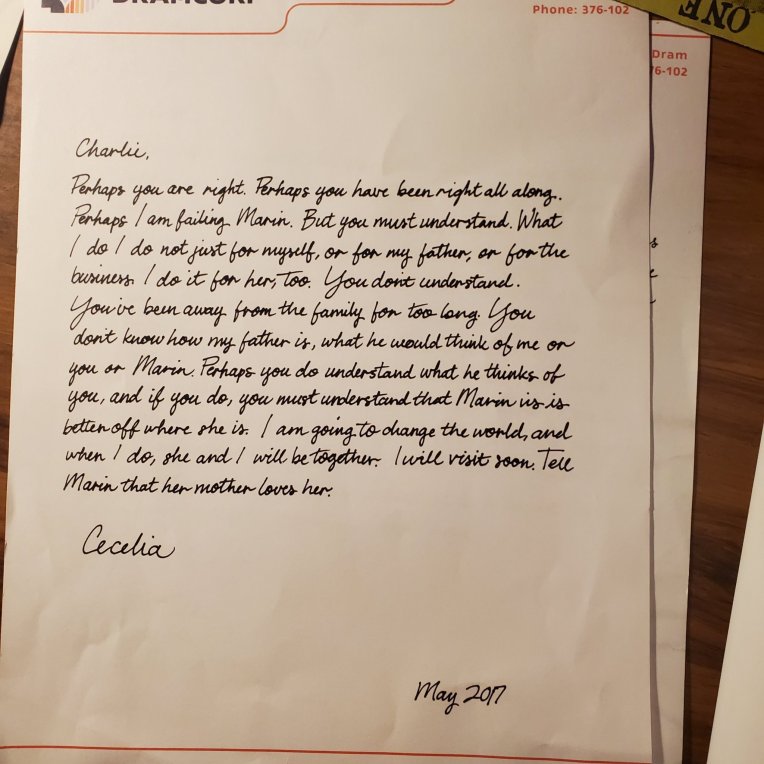 DRAMCORP
Phone: 376-102
ONE
Dram
76-102
Charlie,
Perhaps you are right. Perhaps you have been right all along.
Perhaps I am failing Marin. But you must understand. What
I do I do not just for myself, or for my father, or for the
business. I do it for her, too. You don't understand.
You've been away from the family for too long. You
don't know how my father is, what he would think of me or
you or Marin. Perhaps you do understand what he thinks of
you, and if you do, you must understand that Marin is is
better off where she is. I am going to change the world, and
when I do, she and I will be together. I will visit soon. Tell
Marin that her mother loves her.
Cecelia
May 2017